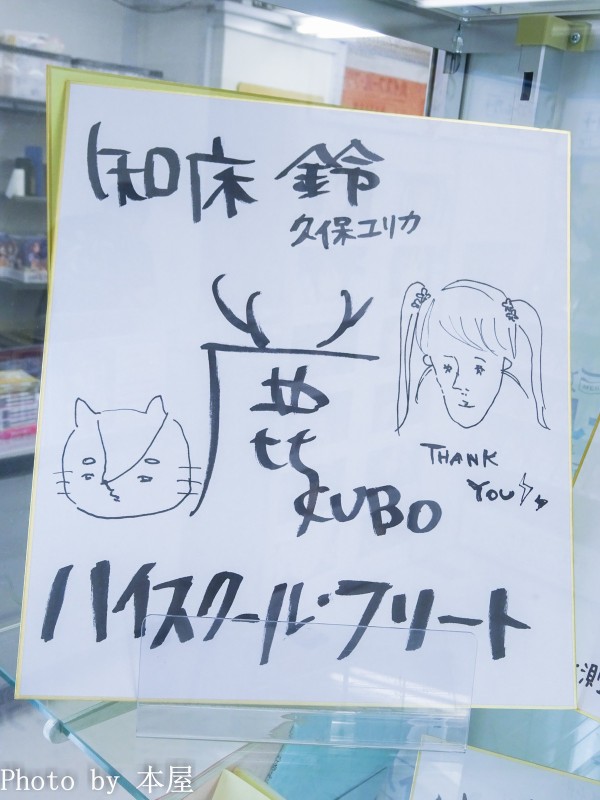 知床 鈴
久保ユリカ
鹿
KUBO
THANK
YOU
ハイスクール・フリート
測
Photo by 本屋